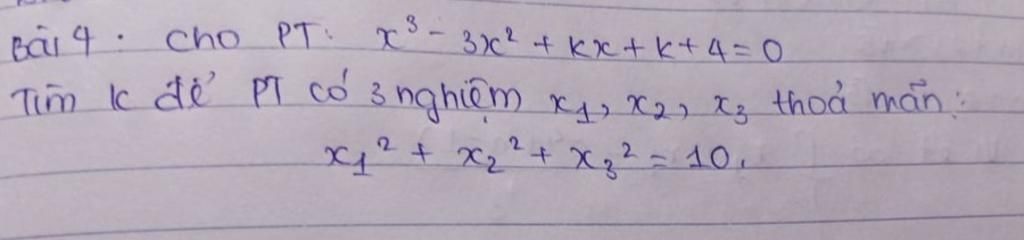 Bài 4. Cho PT: x³ - 3x² + kx + k + 4 = 0
Tìm k để PT có 3 nghiệm x₁, x₂, x₃ thoả mãn:
x₁² + x₂² + x₃² = 10.